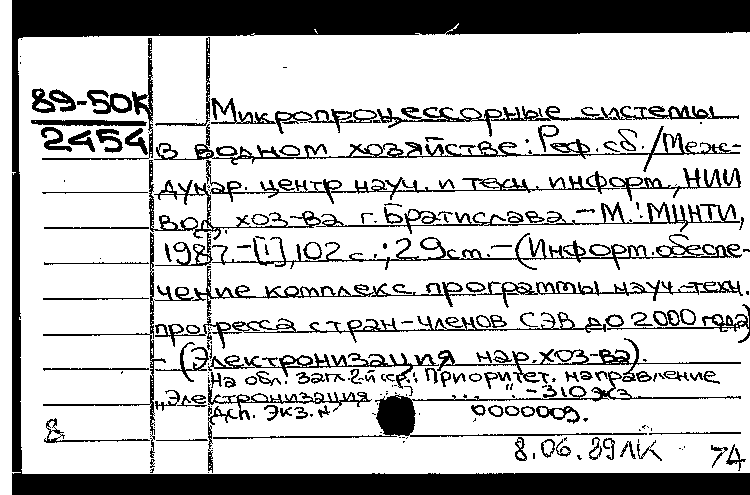 89-50К
2454
Микропроцессорные системы
в водном хозяйстве: Реф. сб. / Меж-
дунар. центр науч. и техн. информ., НИИ
вод. хоз-ва г. Братислава. - М.: МЦНТИ,
1987. - [1], 102 с.; 29 см. - (Информ. обеспе-
чение комплекс. программы науч.-техн.
прогресса стран-членов СЭВ до 2000 года)
- (Электронизация нар. хоз-ва).
На обл. загл. 2-й сер.: Приоритет. направление
"Электронизация ... ". - 310 экз.
Дсп. Экз. № 0000009.
8
8.06.89 ЛК 74